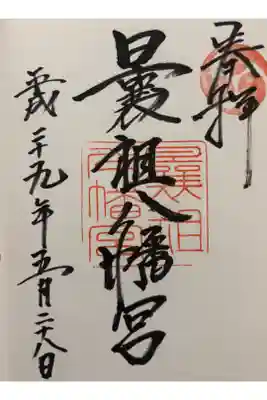 奉拝
曩祖八幡宮
平成二十九年五月二十八日